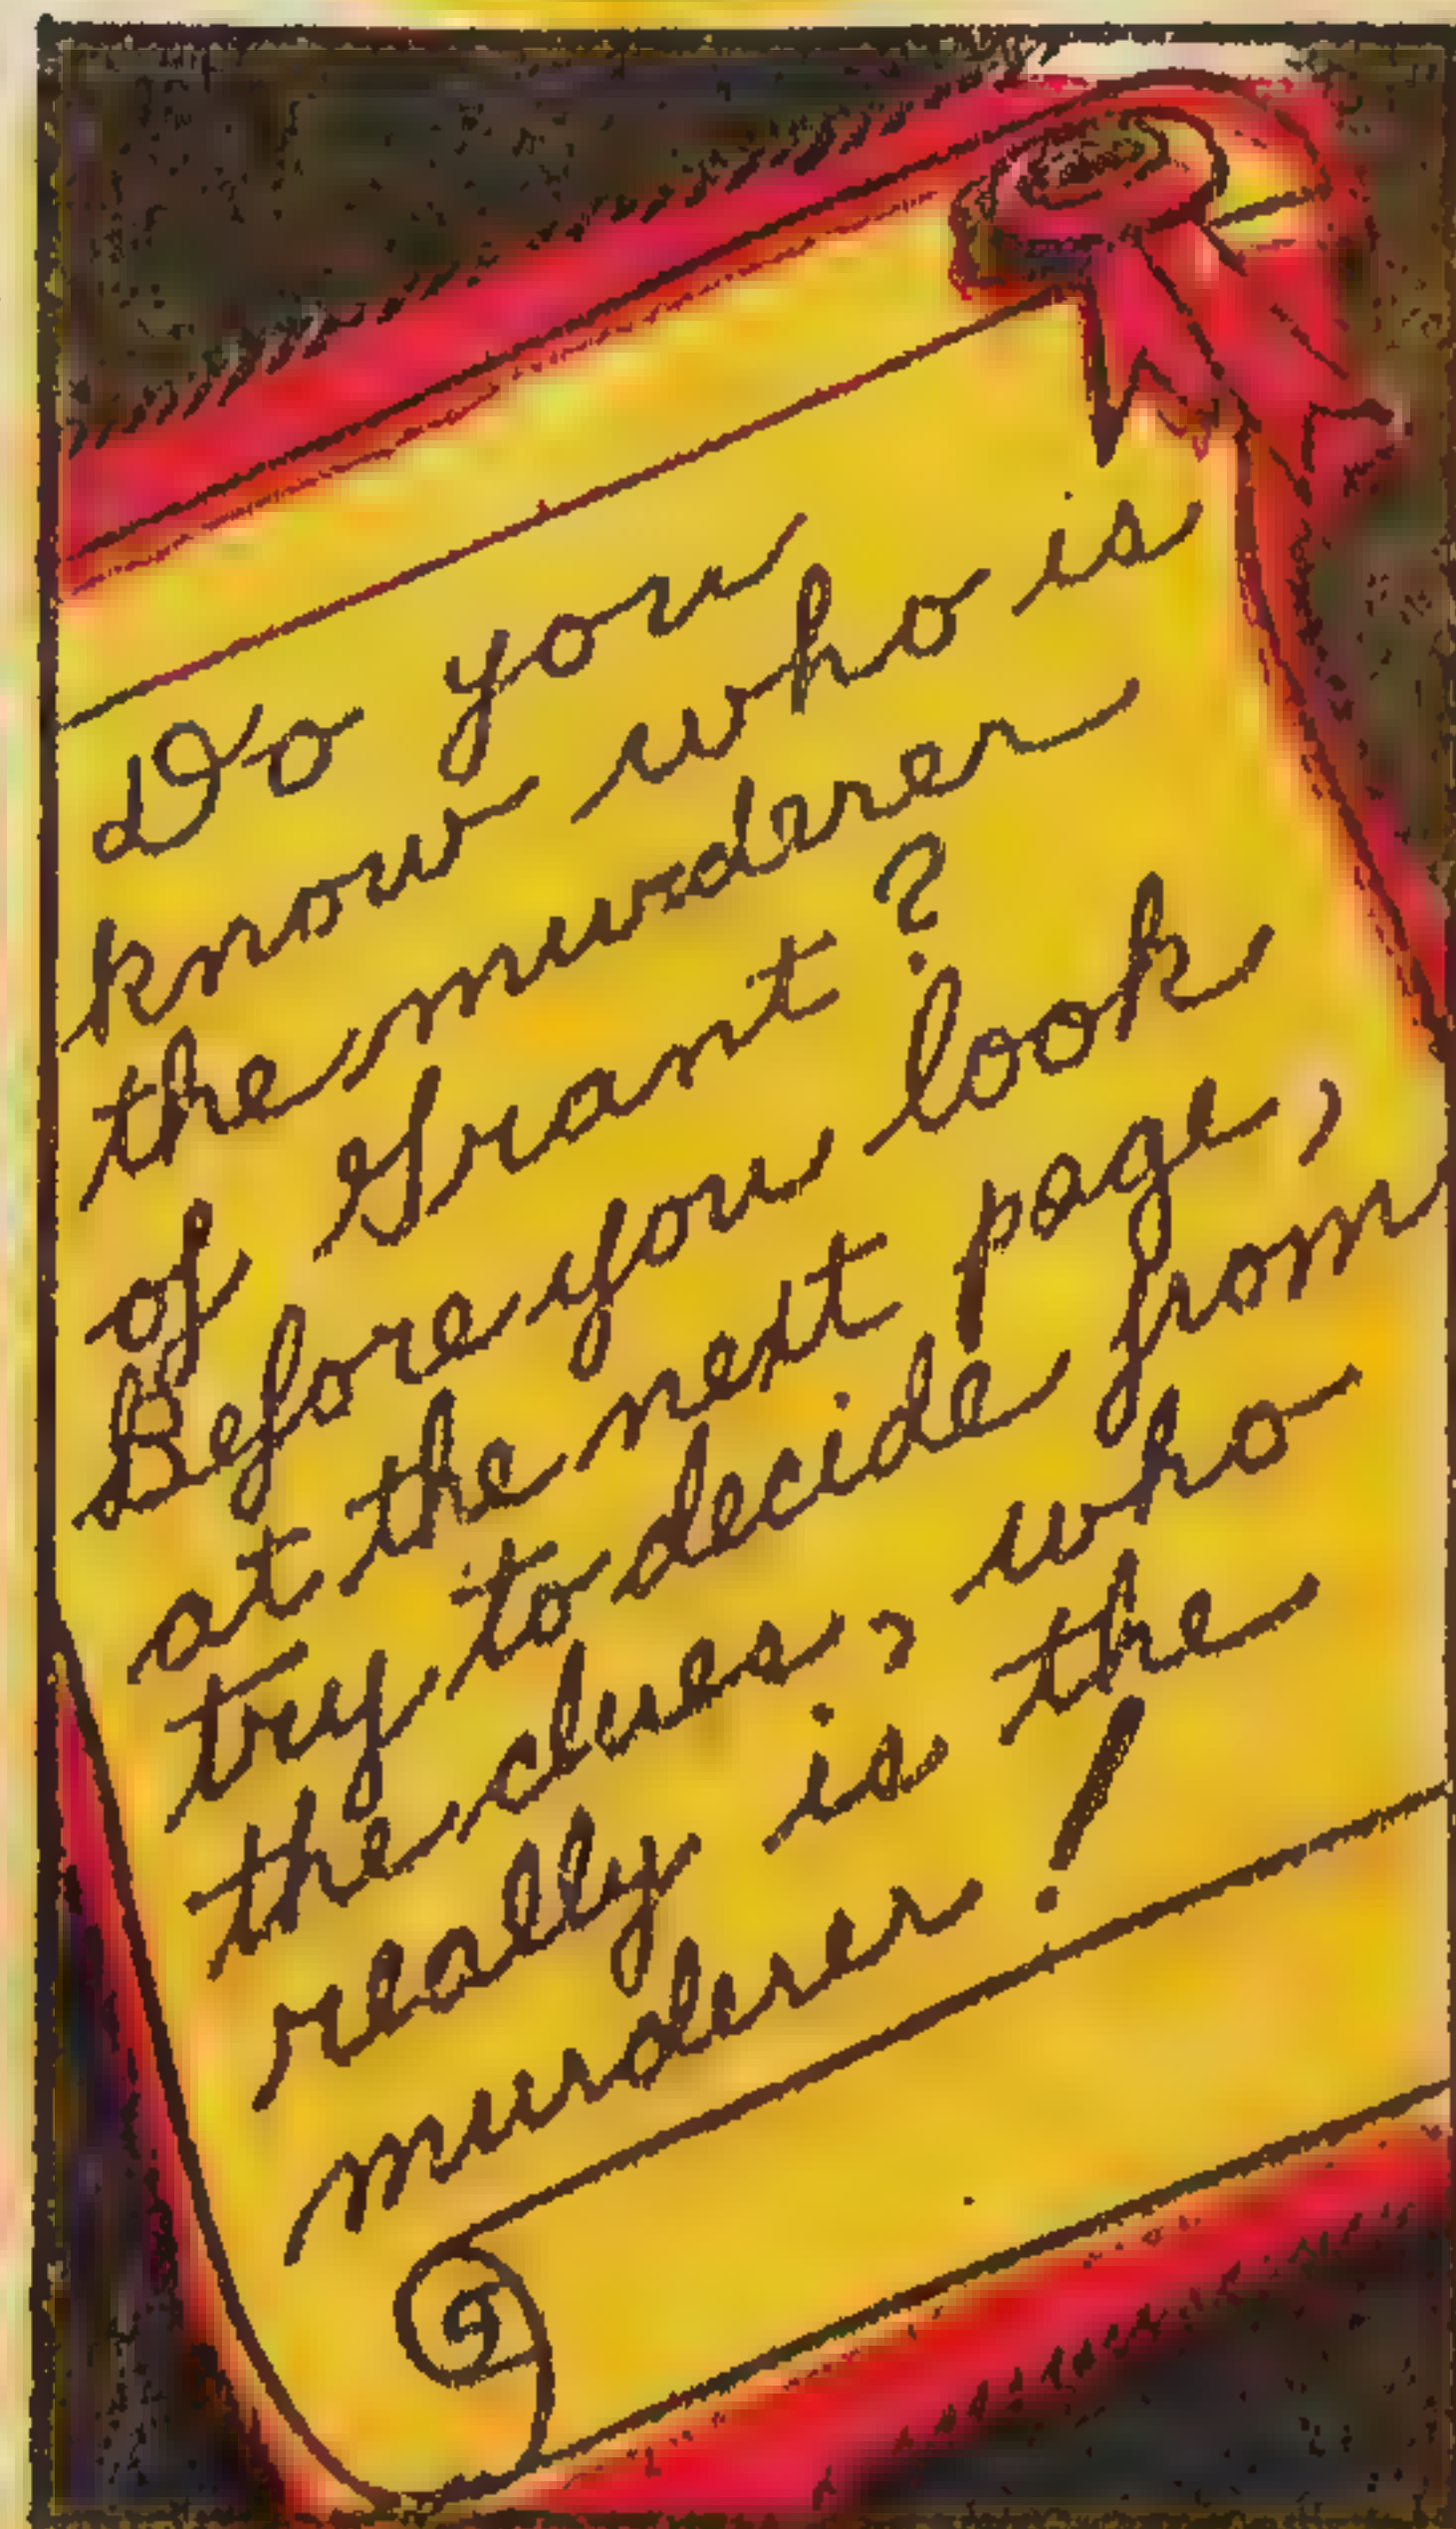 Do you
know who is
the murderer
of Grant?
Before you look
at the next page,
try to decide from
the clues, who
really is the
murderer!